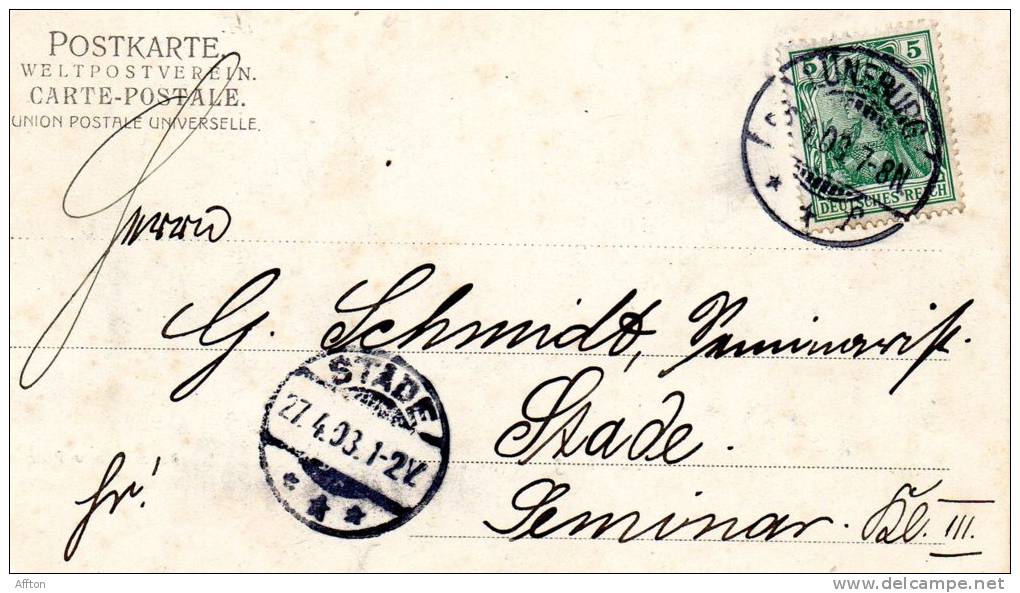 POSTKARTE.
WELTPOSTVEREIN.
CARTE-POSTALE.
UNION POSTALE UNIVERSELLE.
5 5
DEUTSCHES REICH
LÜNEBURG
7-8N
Herrn
G. Schmidt, Seminarist.
STADE
27.4.03.1-2V.
Stade.
Seminar. Kl. III.
fr!
Affton
delcampe.net